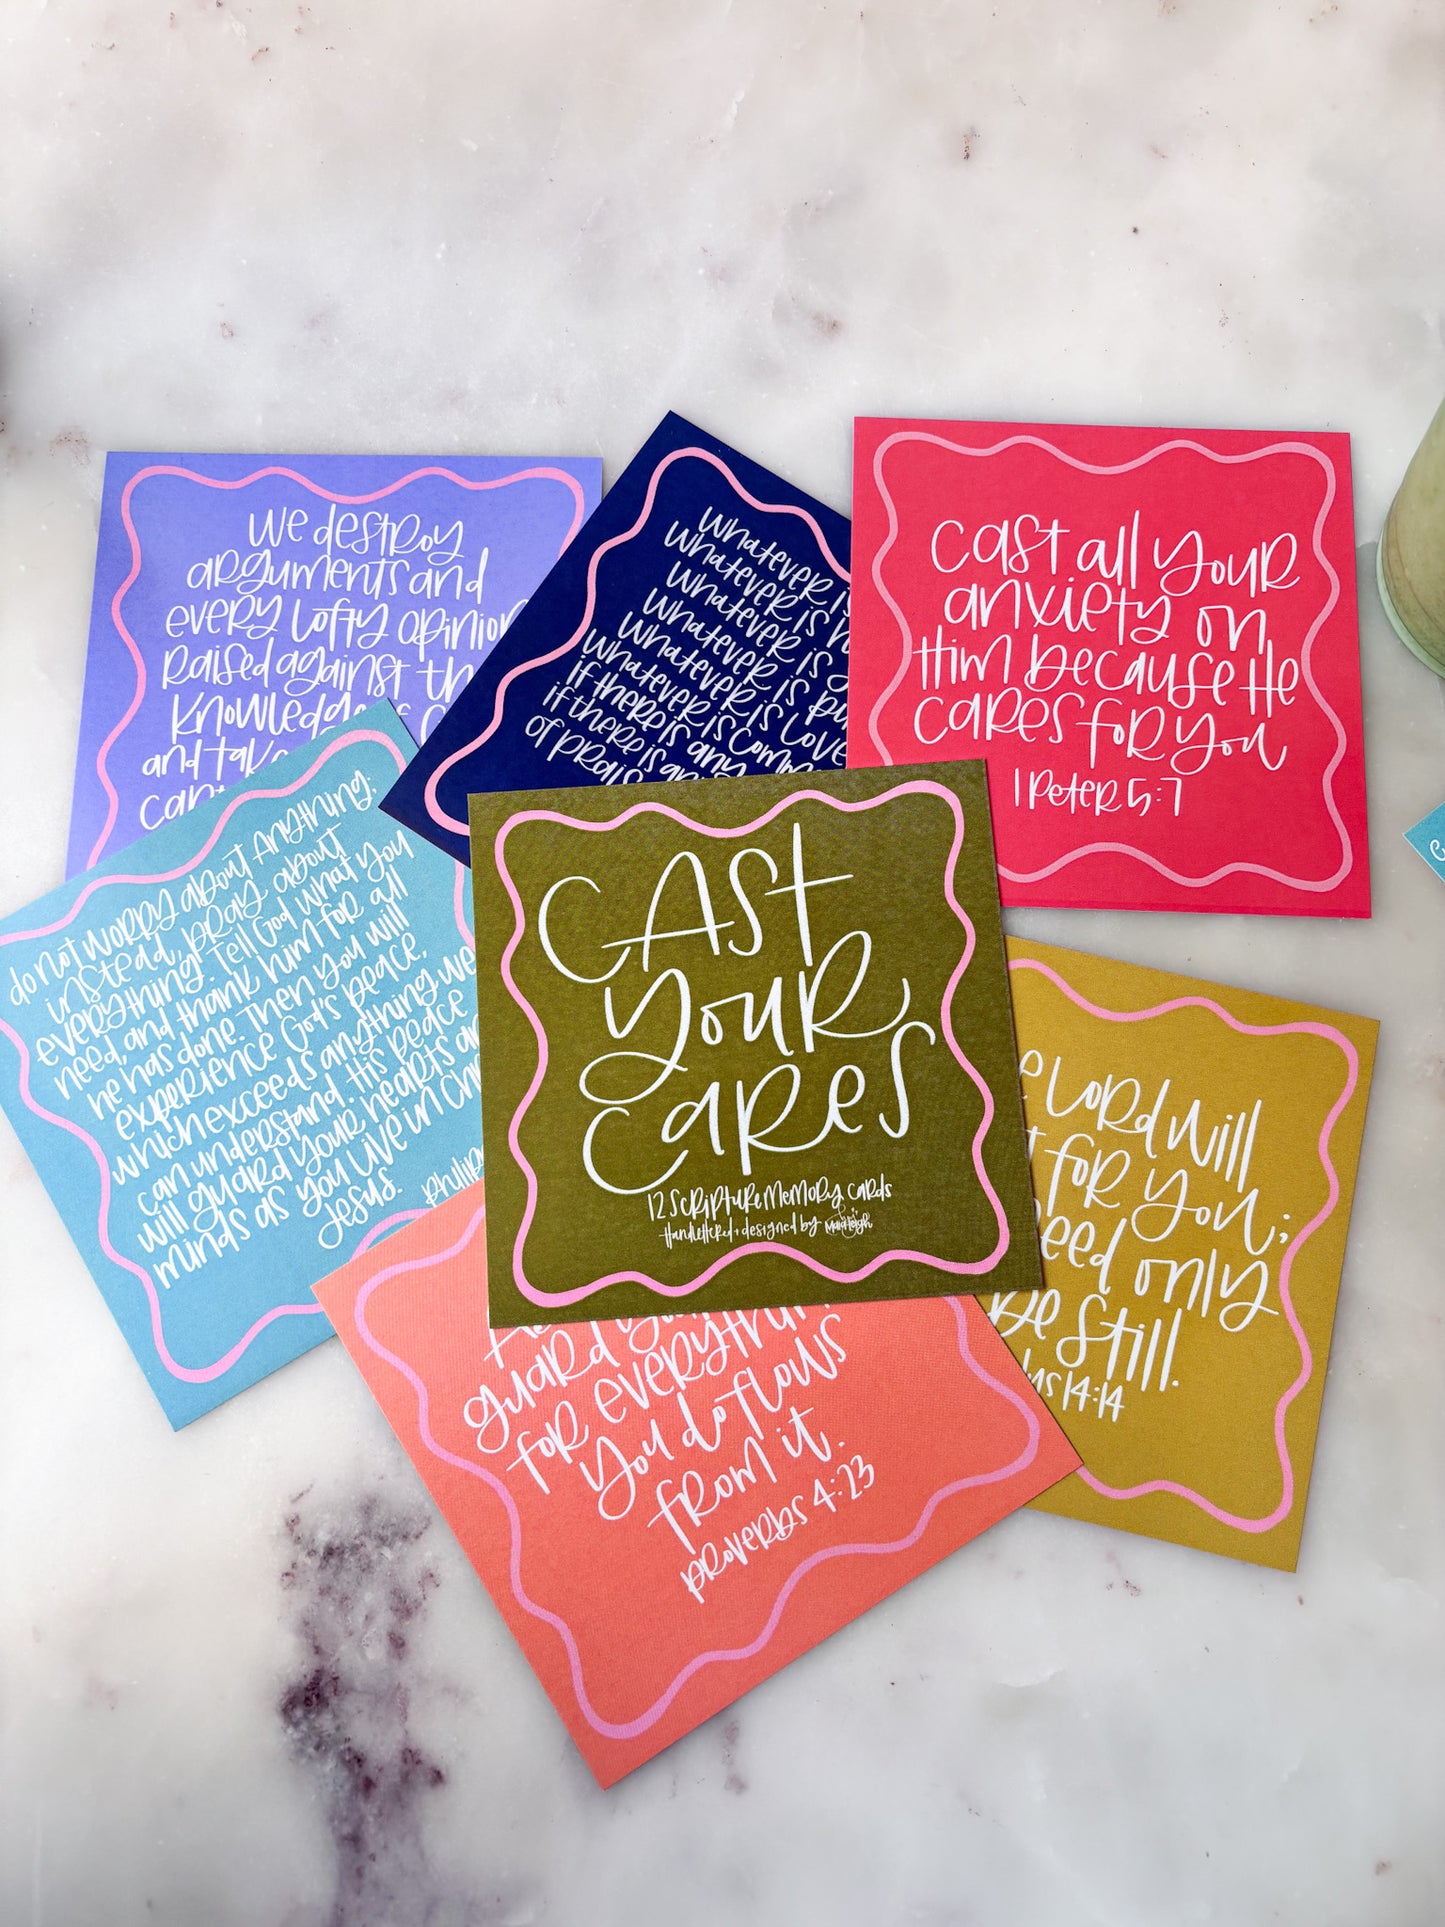 we destroy
arguments and
every lofty opinion
raised against the
knowledge of
and take
whatever is
whatever is
whatever is
whatever is
whatever is pu
whatever is love
whatever is comm
if there is any
if there is an
of prais
cast all your
anxiety on
Him because He
cares for you
1 Peter 5:7
do not worry about anything;
instead, pray about
everything. Tell God what you
need, and thank him for all
he has done. Then you will
experience God's peace,
which exceeds anything we
can understand. His peace
will guard your hearts an
minds as you live in Chr
Jesus.
Philip
CAST
your
cares
12 Scripture Memory Cards
Handlettered + designed by
Lord will
for you;
need only
be still.
us 14:14
guard you
for everythin
you do flows
from it.
Proverbs 4:23